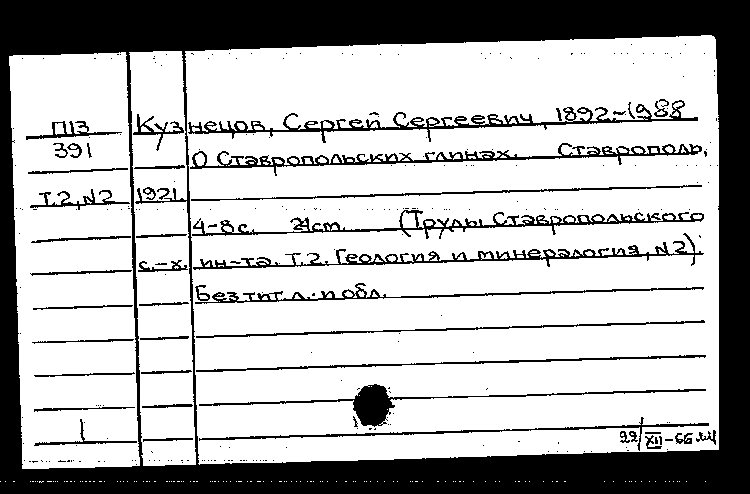 П13 Кузнецов, Сергей Сергеевич, 1892-1988
391 О Ставропольских глинах. Ставрополь,
Т.2, N2 1921.
4-8с. 24cm. (Труды Ставропольского
с.-х. ин-та. Т.2. Геология и минералогия, N2).
Без тит. л. и обл.
1
22/XII-66